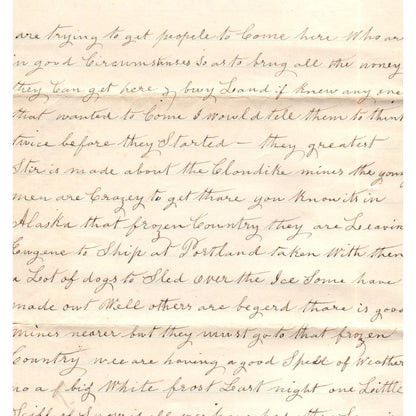 are trying to get peopele to Come here Who are
in good Circumstances So as to brng all the money
they Can get here & buy Land if knew any one
that wanted to Come I Would tell them to think
twice before they Started — they greatest
Stir is made about the Clondike mines the young
men are Crazey to get thare you Know its in
Alaska that frozen Country they are Leaving
Eugene to Ship at Portland taken With them
a Lot of dogs to Sled Over the Ice Some have
made out Well others are begerd thare is good
mines nearer but they must go to that frozen
Country wee are having a good Spell of Weather
no a big White frost Last night one Little